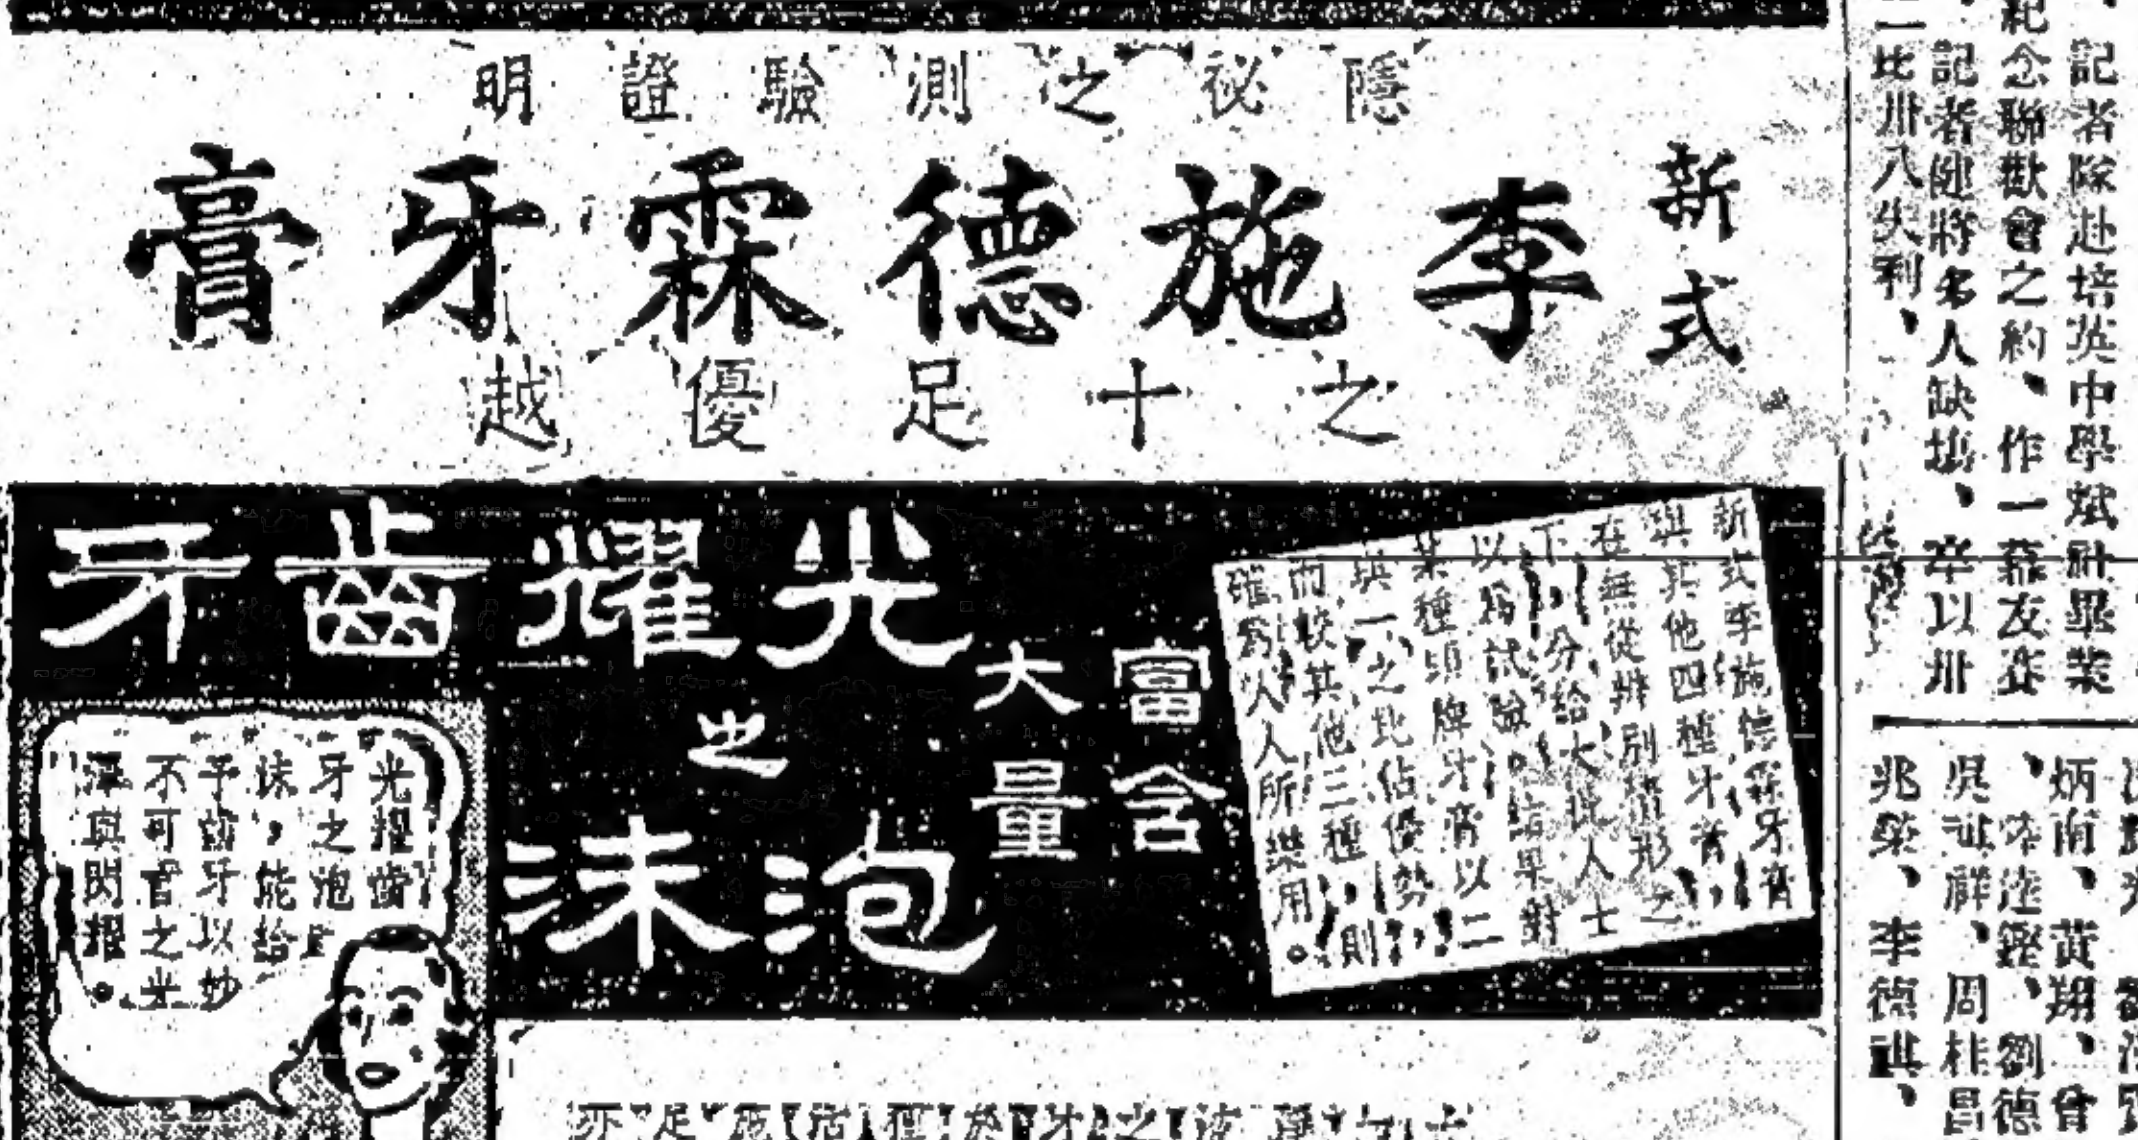 隱祕之測驗證明
新式
李施德霖牙膏
之十足優越
新式李施德霖牙膏
與其他四種牙膏，
在無從辨別情形之
下，分給大批人士
以爲試驗。結果對
某種頭牌牙膏以二
與一之比佔優勢，
而較其他三種，則
確爲人人所樂用。
富含
大量
光耀齒牙
之
泡沫
光耀齒
牙之泡
沫，能給
予齒牙以妙
不可言之光
澤與閃耀。
記者隊赴培英中學斌社畢業
紀念聯歡會之約、作一慕友賽
記者健將多人缺塲、卒以卅
二比卅八失利、
炳南、黃翔、曾
、劉德
吳祥、周桂昌
兆榮、李德祺、